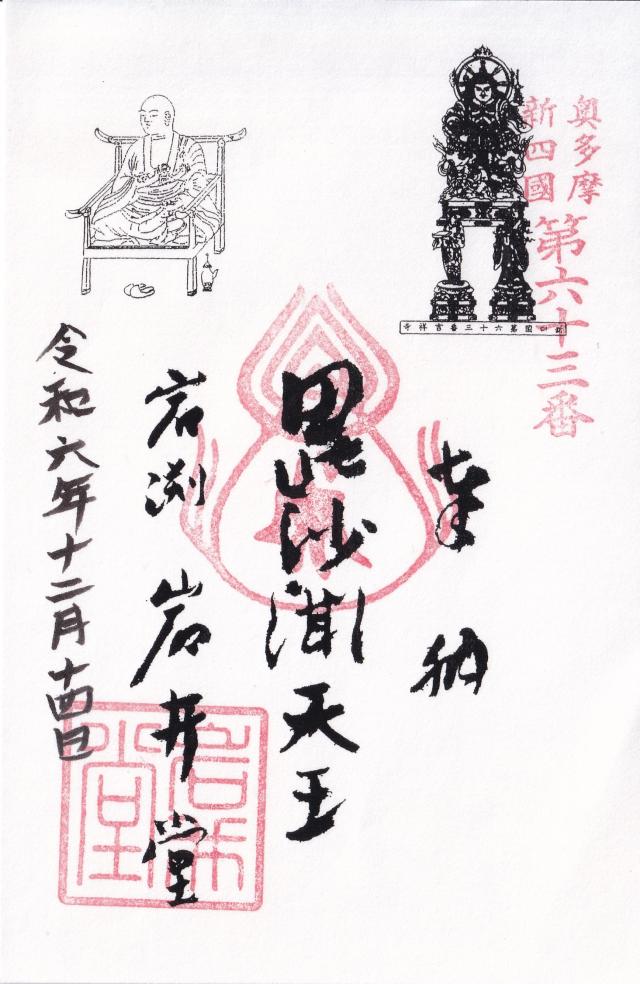 奥多摩
新四國
第六十三番
新四国第六十三番吉祥寺
奉納
毘沙門天王
岩渕 岩井堂
令和六年十二月十四日
岩井堂